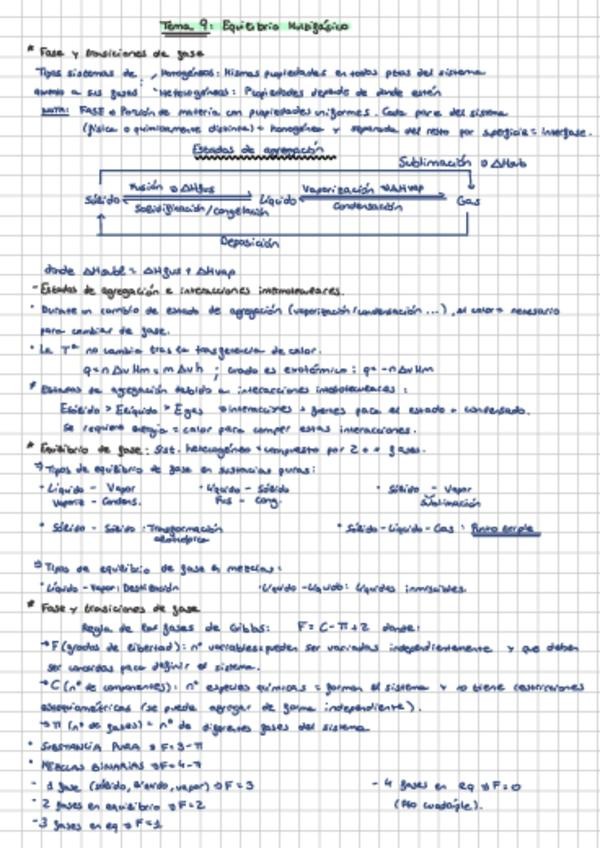 Tema 9: Equilibrio Multifásico
* Fase y transiciones de fase
Tipos sistemas de , Homogéneas: Mismas propiedades en todos ptos del sistema
cuanto a sus fases: Heterogéneas: Propiedades depende de donde estén
NOTA: FASE = Porción de materia con propiedades uniformes. Cada parte del sistema
(física o químicamente distinta) = homogénea y separada del resto por superficie = interfase.
Estados de agregación
Sublimación → ΔHsub
Fusión → ΔHfus Vaporización → ΔHvap
Sólido Líquido Gas
Solidificación/congelación Condensación
Deposición
donde ΔHsubl = ΔHfus + ΔHvap
- Estados de agregación e interacciones intermoleculares.
· Durante un cambio de estado de agregación (vaporización/condensación ...), el calor necesario
para cambiar de fase.
· La Tª no cambia tras la trasferencia de calor.
q = n ΔvHm = m Δvh ; cuando es exotérmico: q = -n ΔvHm
* Estados de agregación debido a interacciones intermoleculares :
Esólido > Elíquido > Egas → interacciones + fuertes para el estado + condensado.
Se requiere energía = calor para romper estas interacciones.
* Equilibrio de fase: Sist. heterogéneo compuesto por 2 o + fases.
⇒ Tipos de equilibrio de fase en sustancias puras:
· Líquido - Vapor · Líquido - Sólido · Sólido - Vapor
Vapori - Condens. Fus - Cong. Sublimación
· Sólido - Sólido : Transformación · Sólido-Líquido-Gas : Punto triple
alotrópica
⇒ Tipos de equilibrio de fase en mezclas:
· Líquido-Vapor: Destilación · Líquido-Líquido: Líquidos inmiscibles.
* Fase y transiciones de fase
Regla de las fases de Gibbs: F = C - π + 2 donde:
→ F (grados de libertad): nº variables pueden ser variadas independientemente y que deben
ser conocidas para definir el sistema.
→ C (nº de componentes): nº especies químicas = forman el sistema y no tiene restricciones
estequiométricas (se puede agregar de forma independiente).
→ π (nº de fases) = nº de diferentes fases del sistema
· SUSTANCIA PURA → F = 3 - π
· MEZCLAS BINARIAS → F = 4 - π
- 1 fase (sólido, líquido, vapor) → F = 3 - 4 fases en eq → F = 0
- 2 fases en equilibrio → F = 2 (Pto cuádruple).
- 3 fases en eq → F = 1